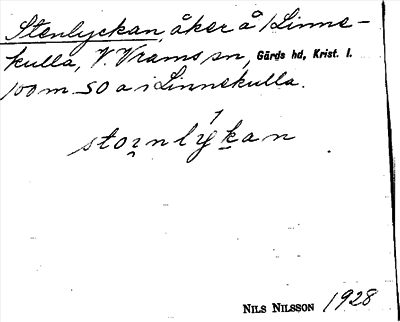 Stenlyckan, åker å 1 Linne-
kulla, V. Vrams sn, Gärds hd, Krist. l.
100 m SO a i Linnekulla.
stoi̯nlýkan
NILS NILSSON 1928